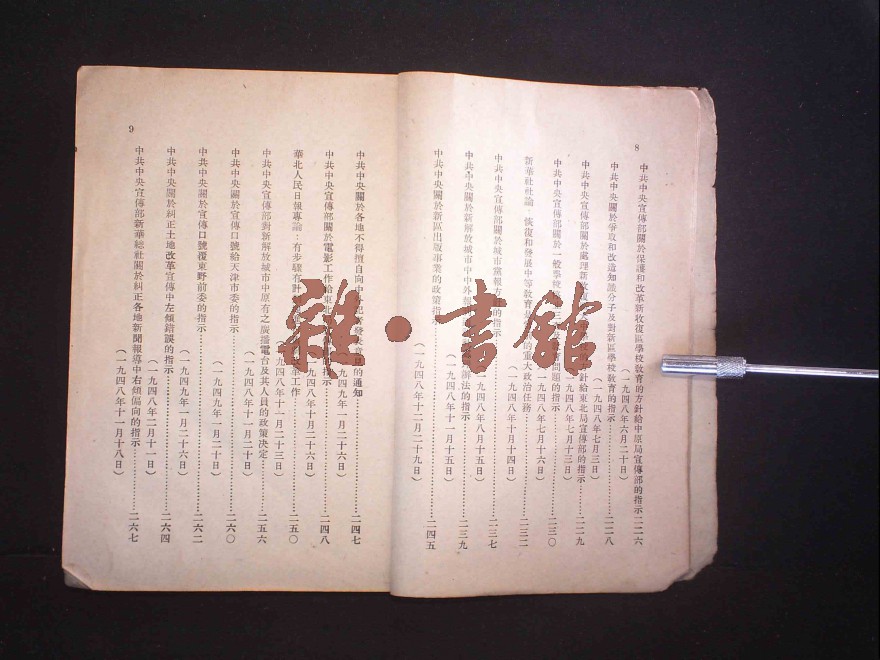 8
中共中央宣傳部關於保護和改革新收復區學校教育的方針給中原局宣傳部的指示 二二六
(一九四八年六月二十日)
中共中央關於爭取和改造知識分子及對新區學校教育的指示 二二八
(一九四八年七月三日)
中共中央宣傳部關於處理新收復
針給東北局宣傳部的指示 二二九
(一九四八年七月十三日)
中共中央宣傳部關於一般學校
問題的指示 二三〇
(一九四八年七月十六日)
新華社社論 恢復和發展中等教育
的重大政治任務 二三二
(一九四八年十月十四日)
中共中央宣傳部關於城市黨報方針的指示 二三七
九四八年八月十五日)
中共中央關於新解放城市中中外報
辦法的指示 二三九
(一九四八年十一月十五日)
中共中央關於新區出版事業的政策指示 二四五
(一九四八年十二月二十九日)
9
中共中央關於各地不得擅自向中外記者發表意見的通知 二四七
九四九年一月二十六日)
中共中央宣傳部關於電影工作給東北
指示 二四八
(一九四八年十月二十六日)
華北人民日報專論:有步驟有計劃
改革工作 二五〇
九四八年十一月二十三日)
中共中央宣傳部對新解放城市中原有之廣播電台及其人員的政策決定 二五六
(一九四八年十一月二十日)
中共中央關於宣傳口號給天津市委的指示 二六〇
(一九四九年一月二十日)
中共中央關於宣傳口號覆東野前委的指示 二六二
(一九四九年一月二十六日)
中共中央關於糾正土地改革宣傳中左傾錯誤的指示 二六四
(一九四八年二月十一日)
中共中央宣傳部新華總社關於糾正各地新聞報導中右傾偏向的指示 二六七
(一九四八年十一月十八日)
雜·書館